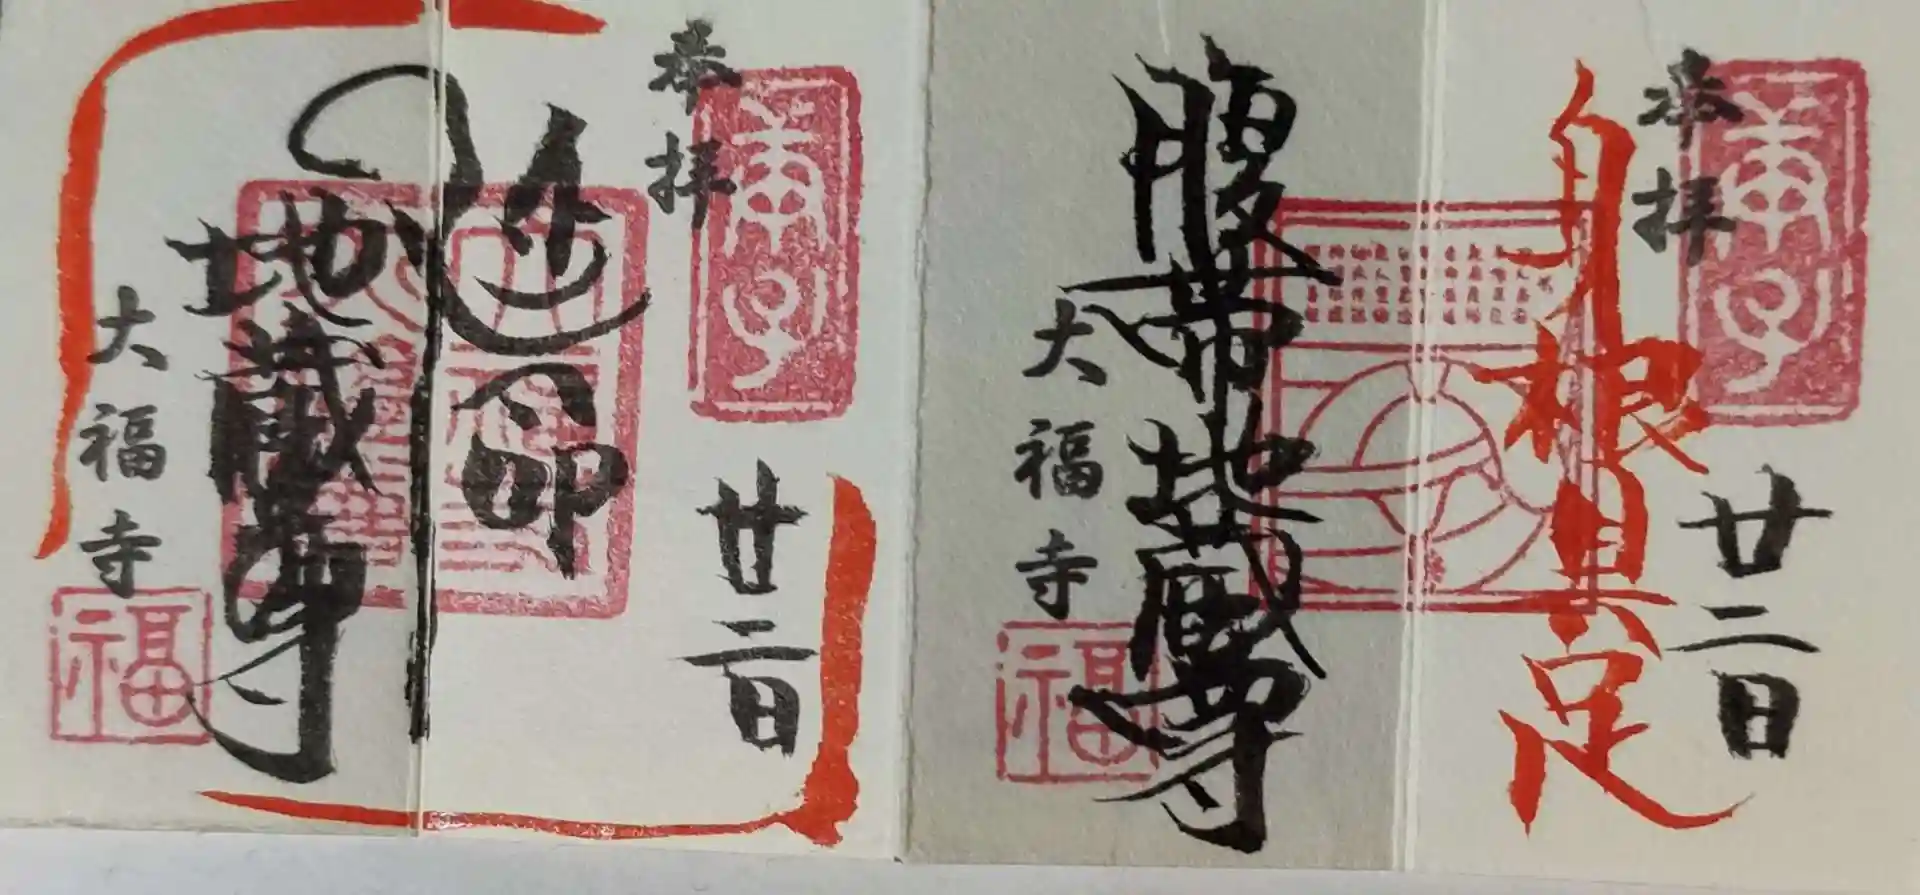 奉拝
庚子
廿二日
身根具足
腹帯地蔵尊
大福寺
福
奉拝
庚子
廿二日
延命
地蔵尊
大福寺
福